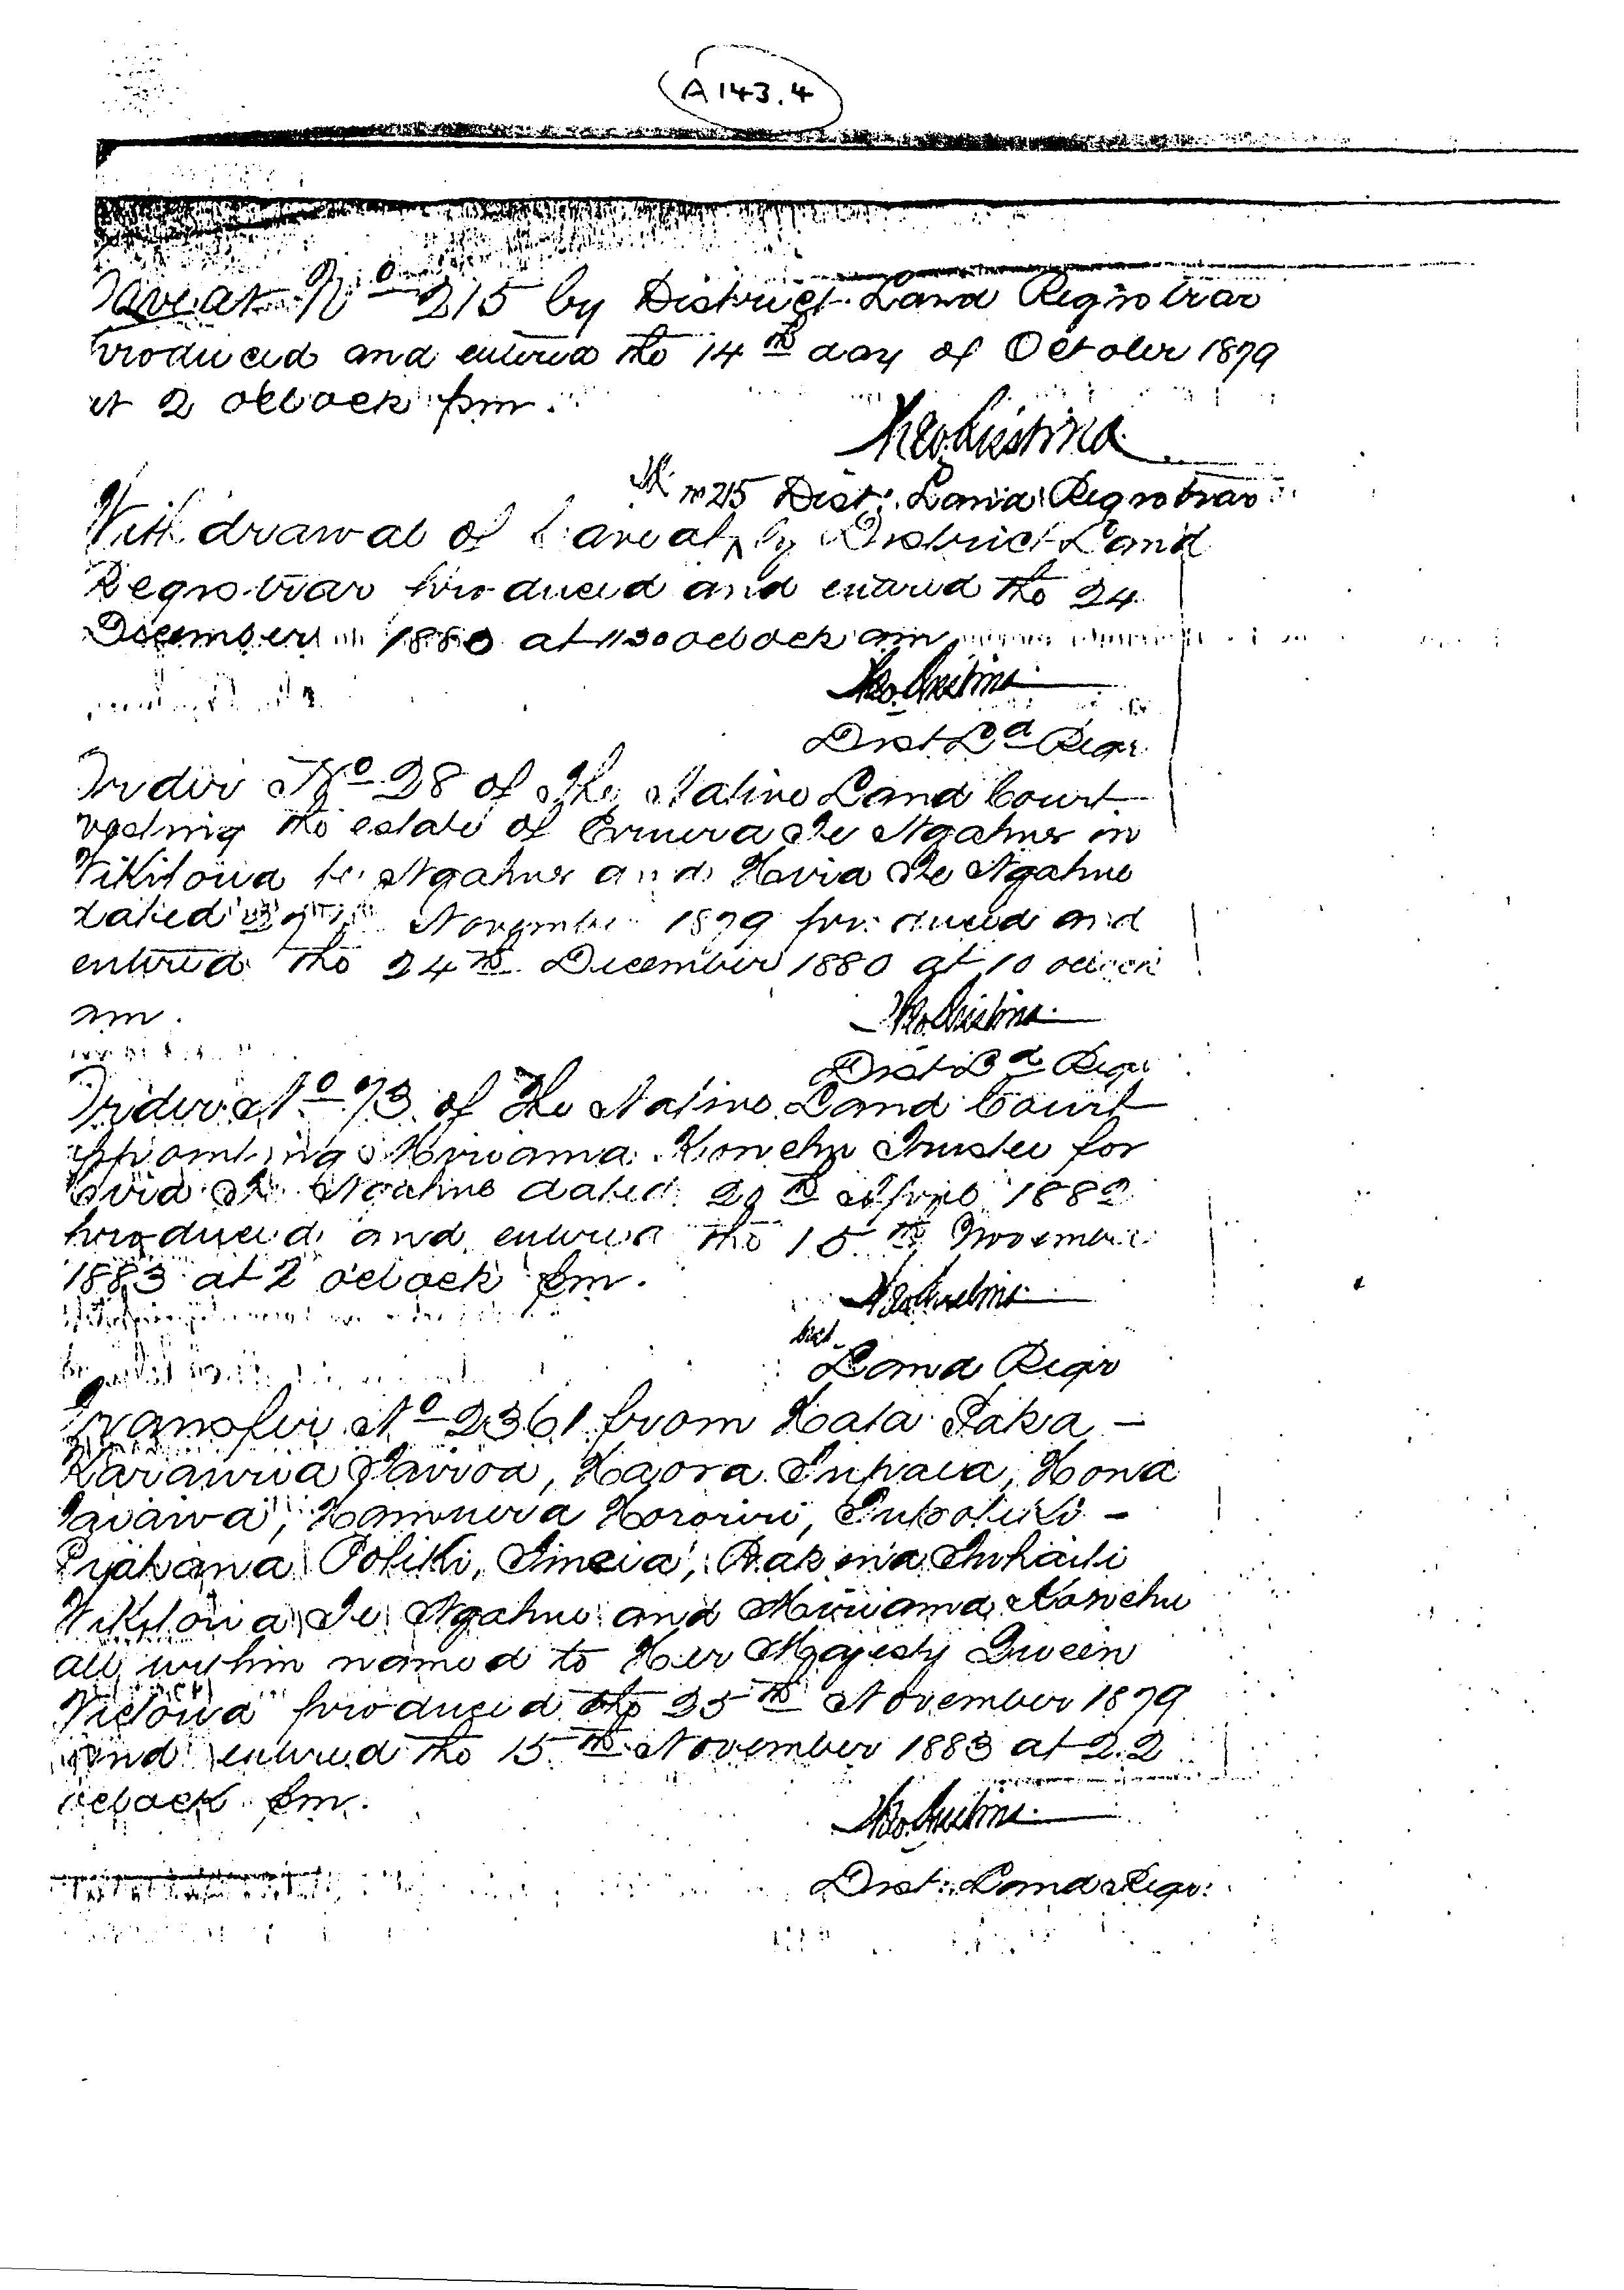 A143.4
Caveat No 215 by District Land Registrar
produced and entered the 14th day of October 1879
at 2 oclock pm.
No 215 Dist. Land Registrar
Withdrawal of Caveat by District Land
Registrar produced and entered the 24
December 1880 at 11 30 oclock am
Dist Ld Regr
Order No 28 of The Native Land Court
vesting the estate of Eruera Te Ngahue in
Wikitoria te Ngahue and Horia Te Ngahue
dated November 1879 produced and
entered the 24th December 1880 at 10 oclock
am.
Dist Ld Regr
Order No 73 of The Native Land Court
appointing Miriama Konehu Trustee for
Te Ngahue dated April 1882
produced and entered the 15th November
1883 at 2 oclock pm.
Dist
Land Regr
Transfer No 2361 from Hata Taka -
Karauria Hona
Hamuera Hororiri, -
Potiki,
Wikitoria Te Ngahue and Miriama Konehu
all within named to Her Majesty Queen
Victoria produced the 25th November 1879
and entered the 15th November 1883 at 2.2
oclock pm.
Dist. Land Regr.